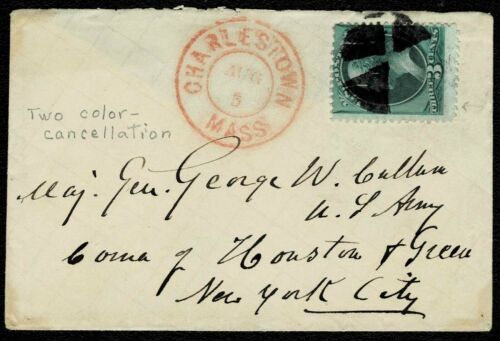 CHARLESTOWN
AUG
5
MASS
Two color-
cancellation
Maj. Gen. George W. Cullum
U. S. Army
Corner of Houston & Green
New York City